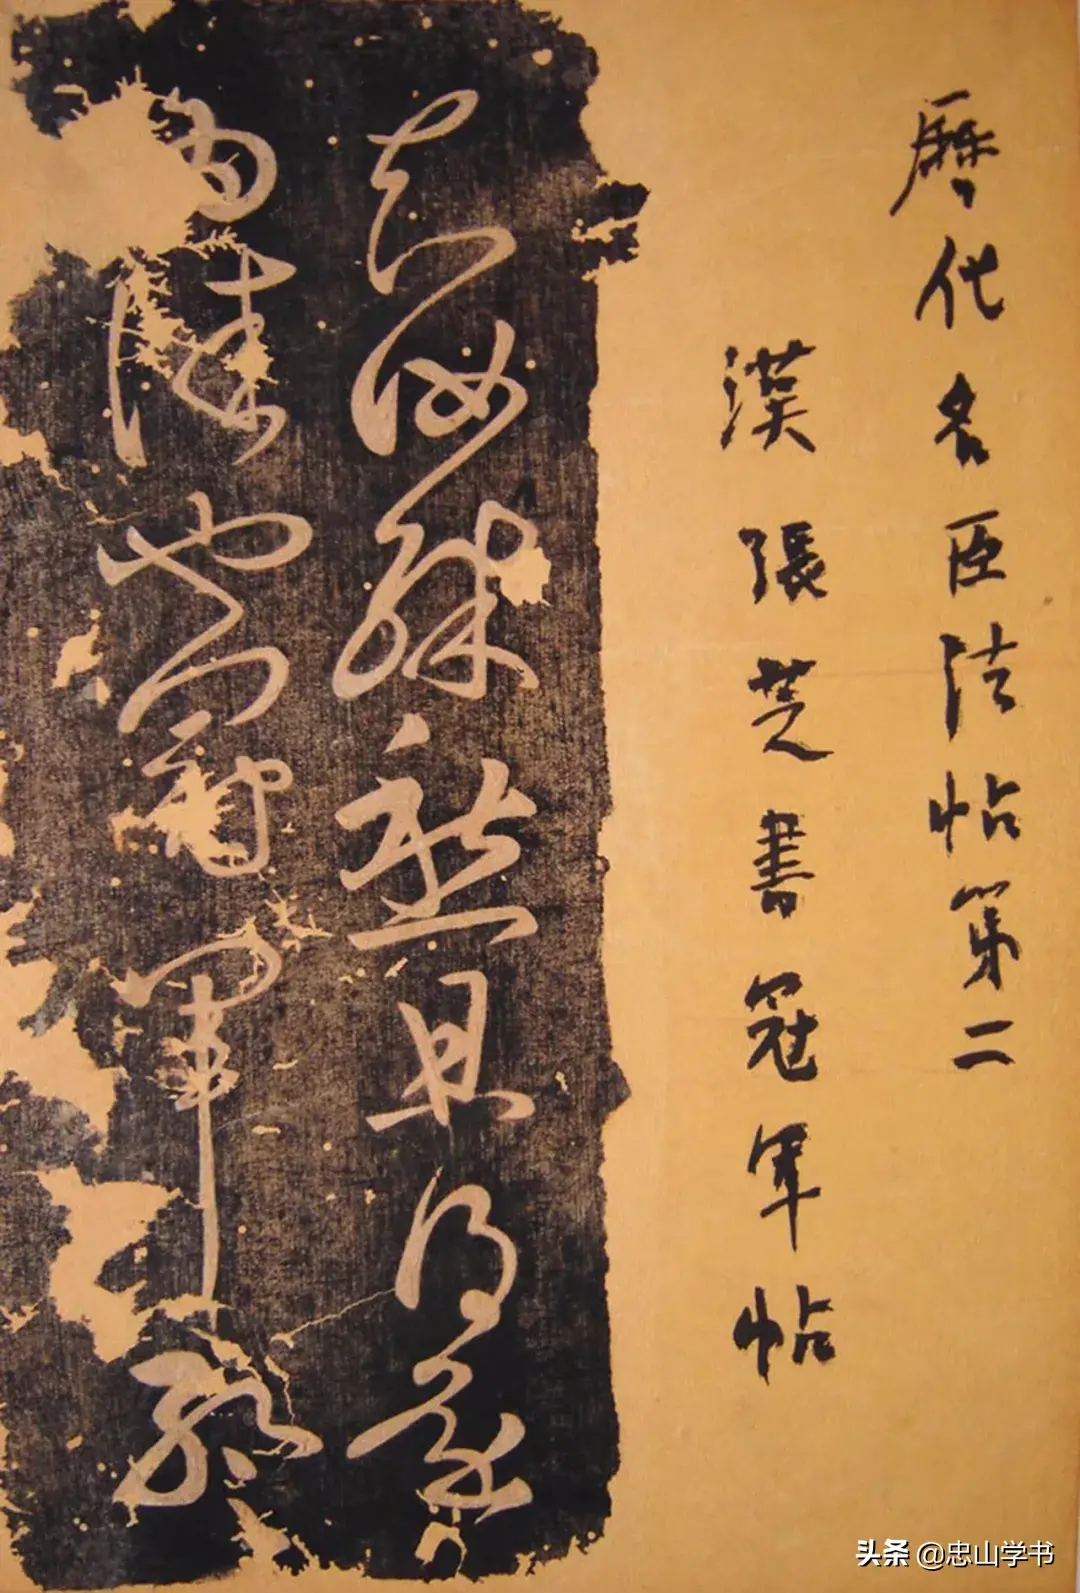 歷代名臣法帖第二
漢張芝書冠軍帖
知汝殊愁且得還
為佳也冠軍暫
头条 @忠山学书